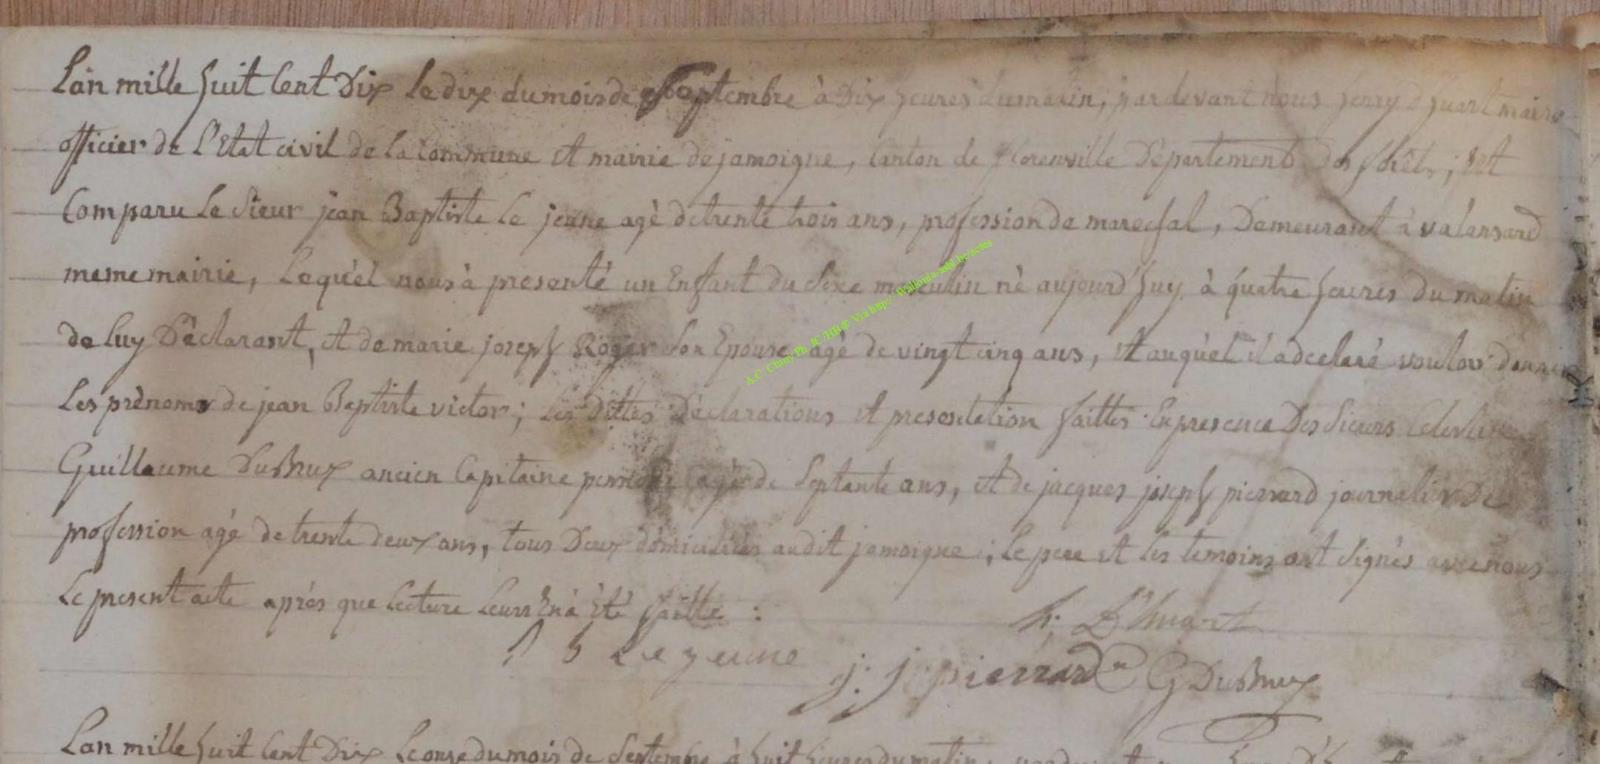 L'an mille huit Cent Dix le dix du mois de Septembre à Dix heures du matin, par devant nous henry d'huart maire
officier de L'Etat civil de la Commune et mairie de jamoigne, Canton de florenville Département des forêts; est
Comparu le Sieur jean Baptiste Le jeune agé de trente trois ans, profession de marechal, Demeurant à valansard
meme mairie, Lequél nous à presenté un Enfant du Sexe masculin né aujourd'huy à quatre heures du matin
de luy Déclarant, et de marie joseph Roger son Epouse agé de vingt cinq ans, et auquél il a declaré vouloir donner
Les prénoms de jean Baptiste victor; les dittes Déclarations et presentation faittes En presence Des Sieurs Celestin
Guillaume DuBhux ancien Capitaine agé de Septante ans, et de jacques joseph pierrard journalier De
profession agé de trente deux ans, tous Deux domiciliés audit jamoigne; le pere et les temoins ont Signés avec nous
Le present acte aprés que lecture leurs En à Eté faitte :
h. D'huart
J B Le jeune j. j. pierrard G DuBhux
L'an mille huit Cent Dix Le onze du mois de Septembre à huit heures du matin,
A.C. Chiny Ph. R. JHR@ Via http://Wallonia-asbl.be/actes